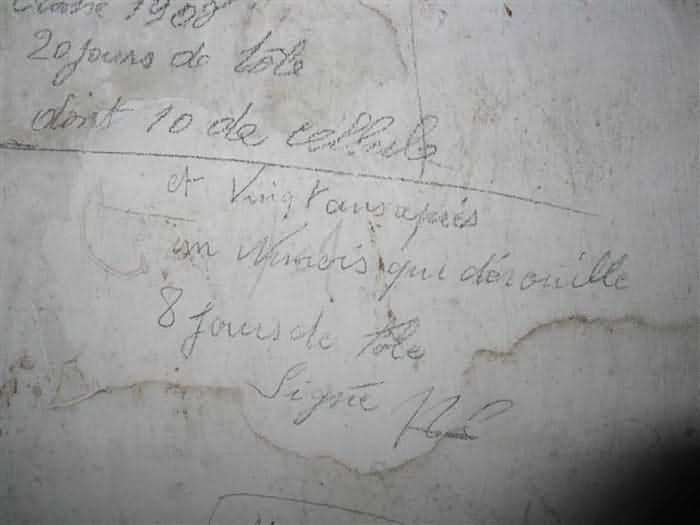 Classe 1908
20 jours de tole
dont 10 de cellule
et Vingt ans après
un Niçois qui dérouille
8 jours de tole
Signée